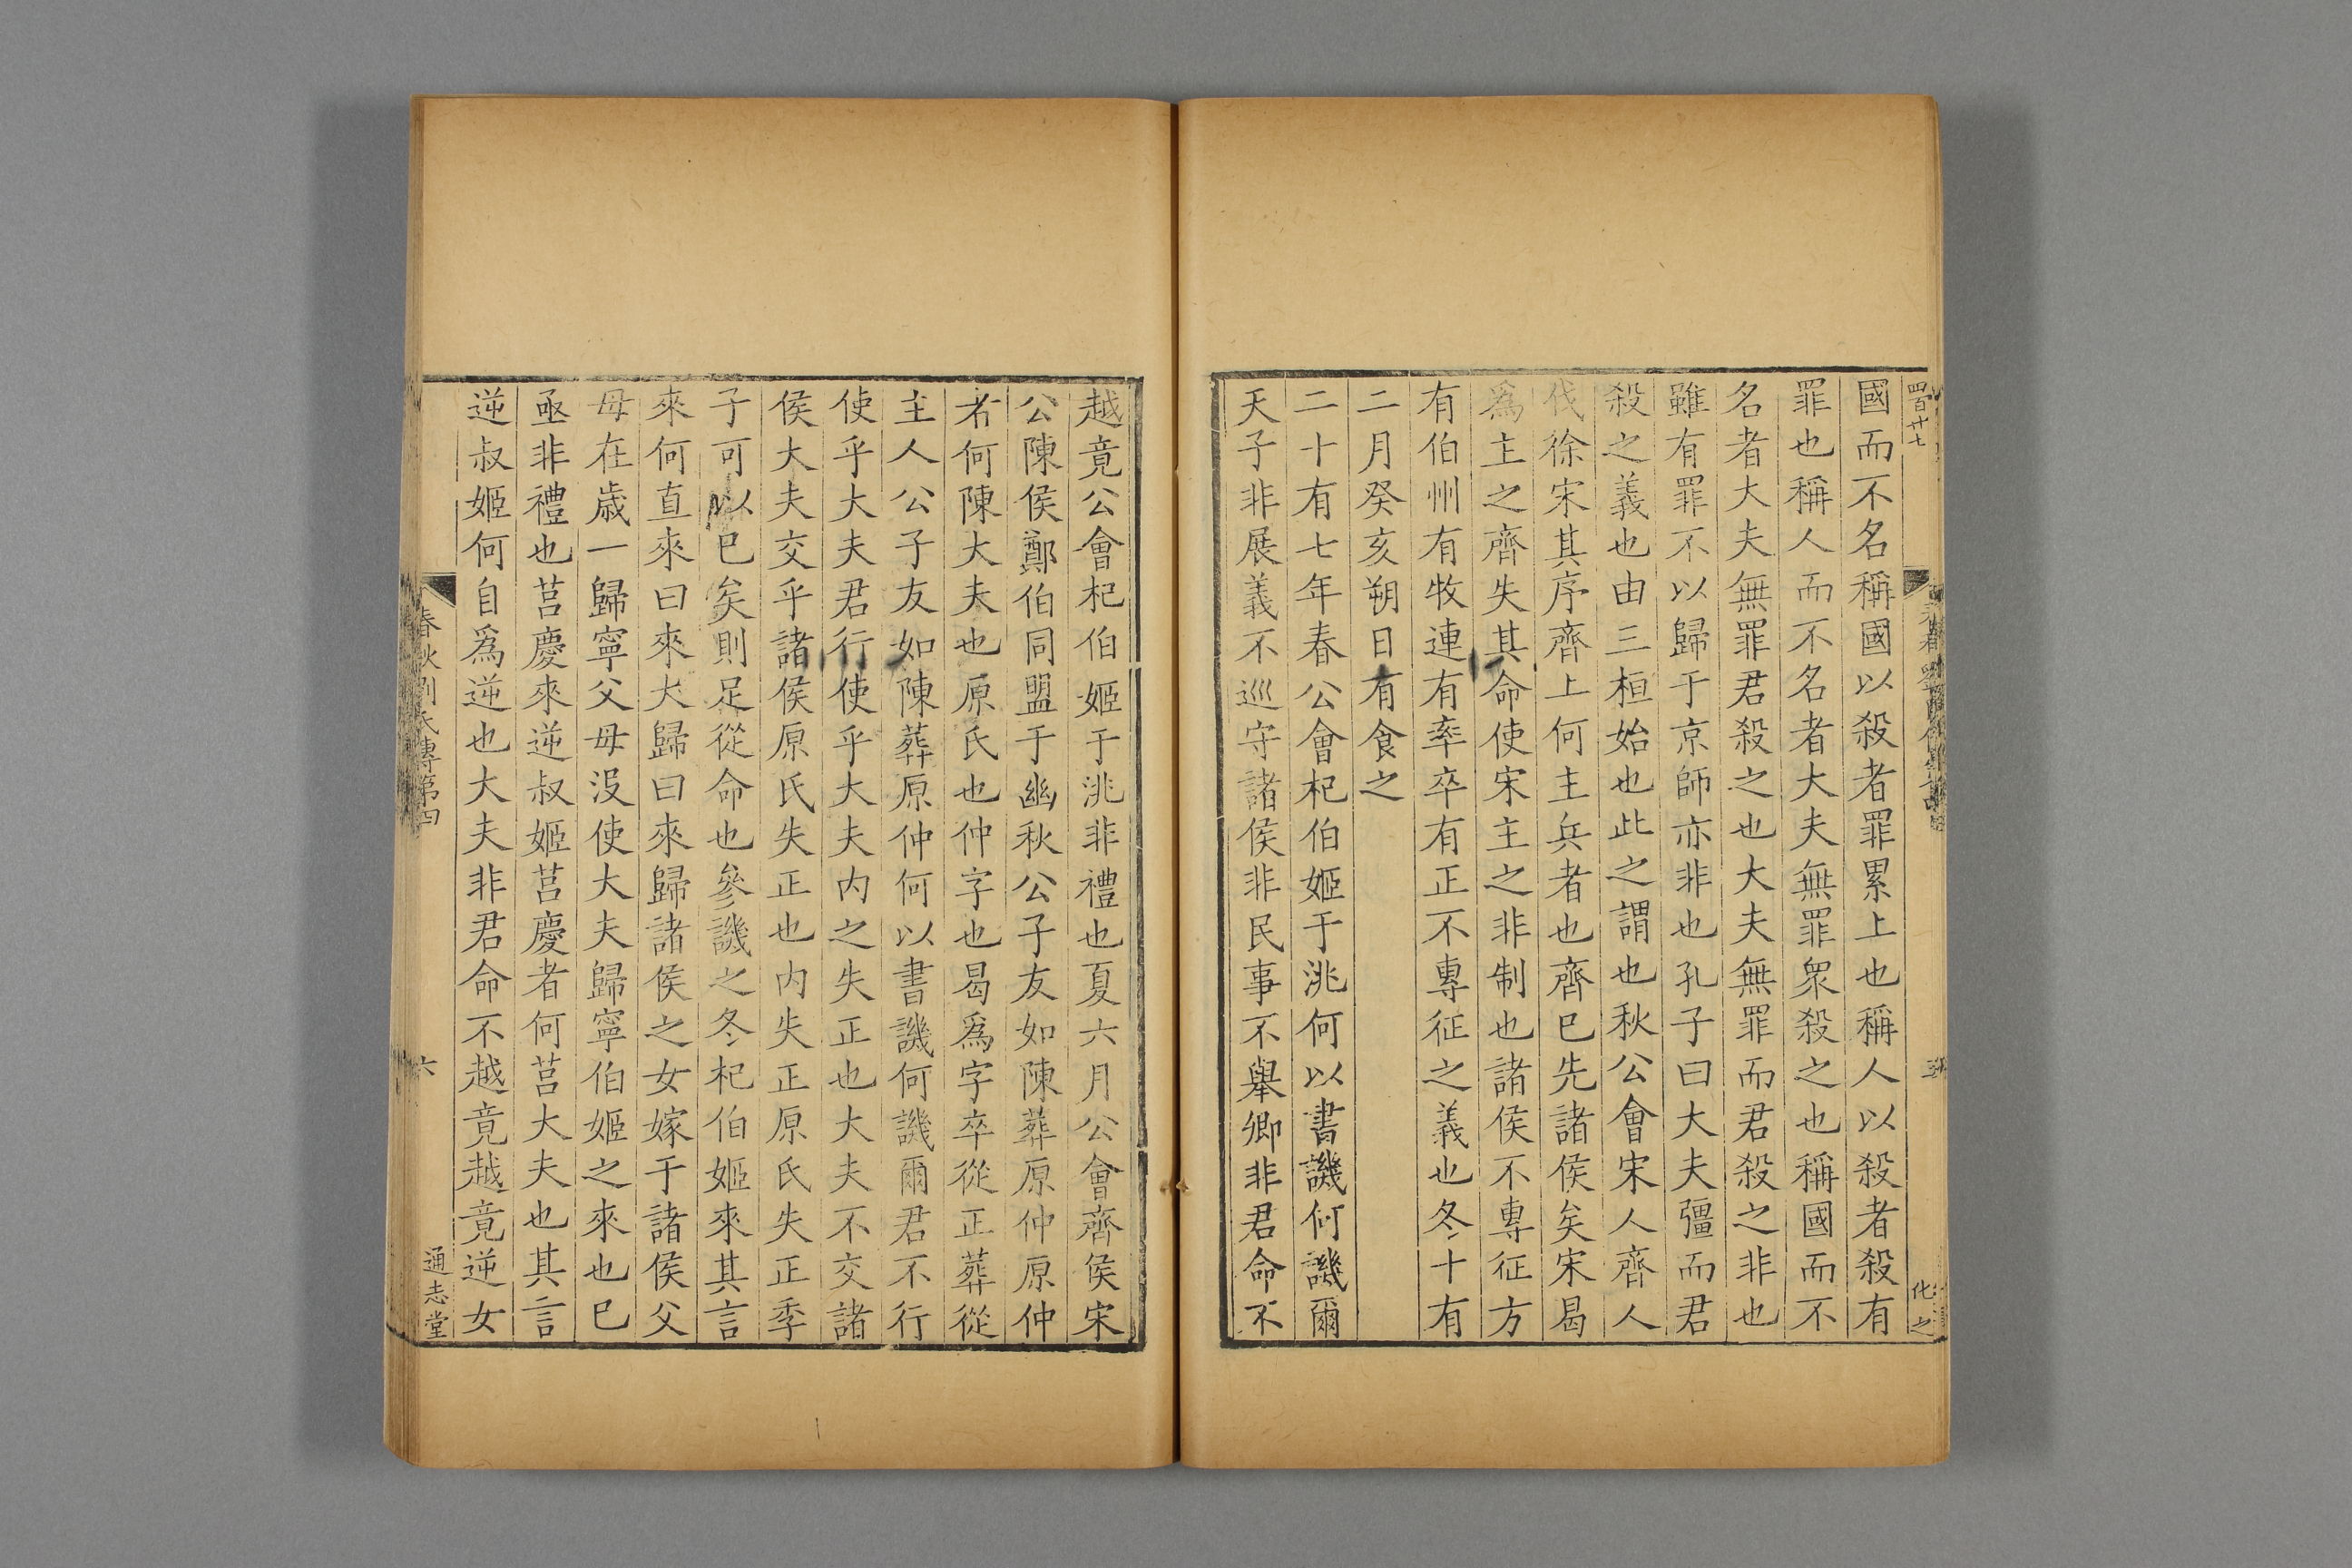 四百十七
國而不名稱國以殺者罪累上也稱人以殺者殺有
罪也稱人而不名者大夫無罪衆殺之也稱國而不
名者大夫無罪君殺之也大夫無罪而君殺之非也
雖有罪不以歸于京師亦非也孔子曰大夫彊而君
殺之義也由三桓始也此之謂也秋公會宋人齊人
伐徐宋其序齊上何主兵者也齊巳先諸侯矣宋曷
爲主之齊失其命使宋主之非制也諸侯不專征方
有伯州有牧連有率卒有正不專征之義也冬十有
二月癸亥朔日有食之
二十有七年春公會杞伯姬于洮何以書譏何譏爾
天子非展義不巡守諸侯非民事不舉卿非君命不
越竟公會杞伯姬于洮非禮也夏六月公會齊侯宋
公陳侯鄭伯同盟于幽秋公子友如陳葬原仲原仲
者何陳大夫也原氏也仲字也曷爲字卒從正葬從
主人公子友如陳葬原仲何以書譏何譏爾君不行
使乎大夫君行使乎大夫内之失正也大夫不交諸
侯大夫交乎諸侯原氏失正也内失正原氏失正季
子可以巳矣則足從命也參譏之冬杞伯姬來其言
來何直來曰來大歸曰來歸諸侯之女嫁于諸侯父
母在歳一歸寧父母沒使大夫歸寧伯姬之來也巳
亟非禮也莒慶來逆叔姬莒慶者何莒大夫也其言
逆叔姬何自爲逆也大夫非君命不越竟越竟逆女
春秋劉氏傳第四
六
通志堂